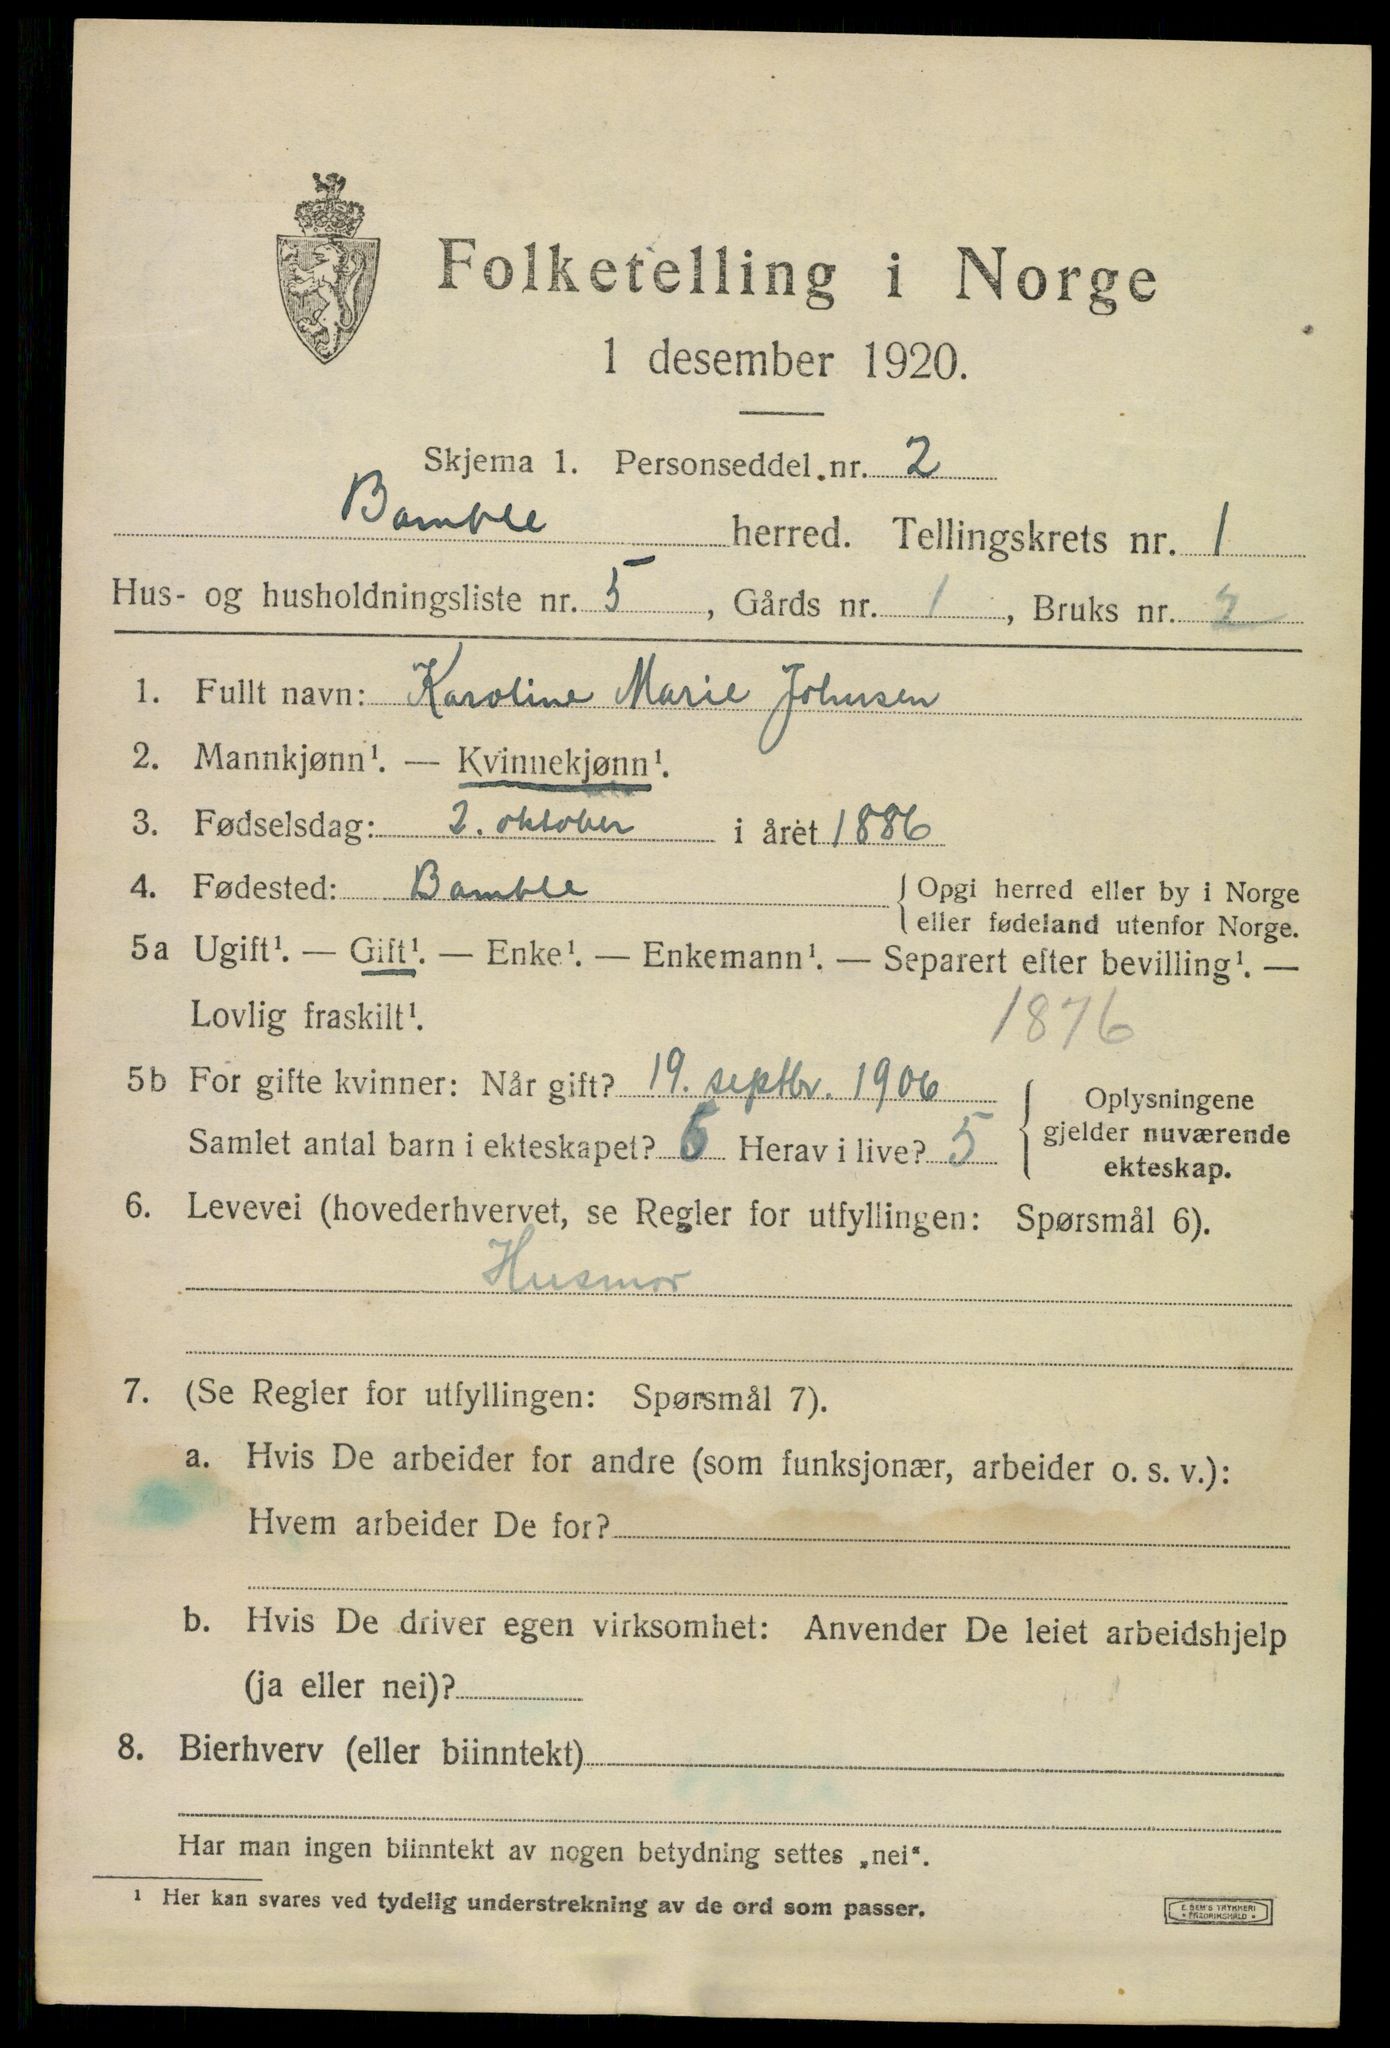 Folketelling i Norge
1 desember 1920.
Skjema 1. Personseddel nr. 2
Bamble herred. Tellingskrets nr. 1
Hus- og husholdningsliste nr. 5, Gårds nr. 1, Bruks nr. 2
1. Fullt navn: Karoline Marie Johnsen
2. Mannkjønn¹. — Kvinnekjønn¹.
3. Fødselsdag: 2. oktober i året 1886
4. Fødested: Bamble { Opgi herred eller by i Norge
eller fødeland utenfor Norge.
5a Ugift¹. — Gift¹. — Enke¹. — Enkemann¹. — Separert efter bevilling¹. —
Lovlig fraskilt¹. 1876
5b For gifte kvinner: Når gift? 19. septbr. 1906 { Oplysningene
Samlet antal barn i ekteskapet? 6 Herav i live? 5 gjelder nuværende
ekteskap.
6. Levevei (hovederhvervet, se Regler for utfyllingen: Spørsmål 6).
Husmor
7. (Se Regler for utfyllingen: Spørsmål 7).
a. Hvis De arbeider for andre (som funksjonær, arbeider o. s. v.):
Hvem arbeider De for?
b. Hvis De driver egen virksomhet: Anvender De leiet arbeidshjelp
(ja eller nei)?
8. Bierhverv (eller biinntekt)
Har man ingen biinntekt av nogen betydning settes „nei“.
¹ Her kan svares ved tydelig understrekning av de ord som passer.
E. SEM'S TRYKKERI
• FREDRIKSHALD •